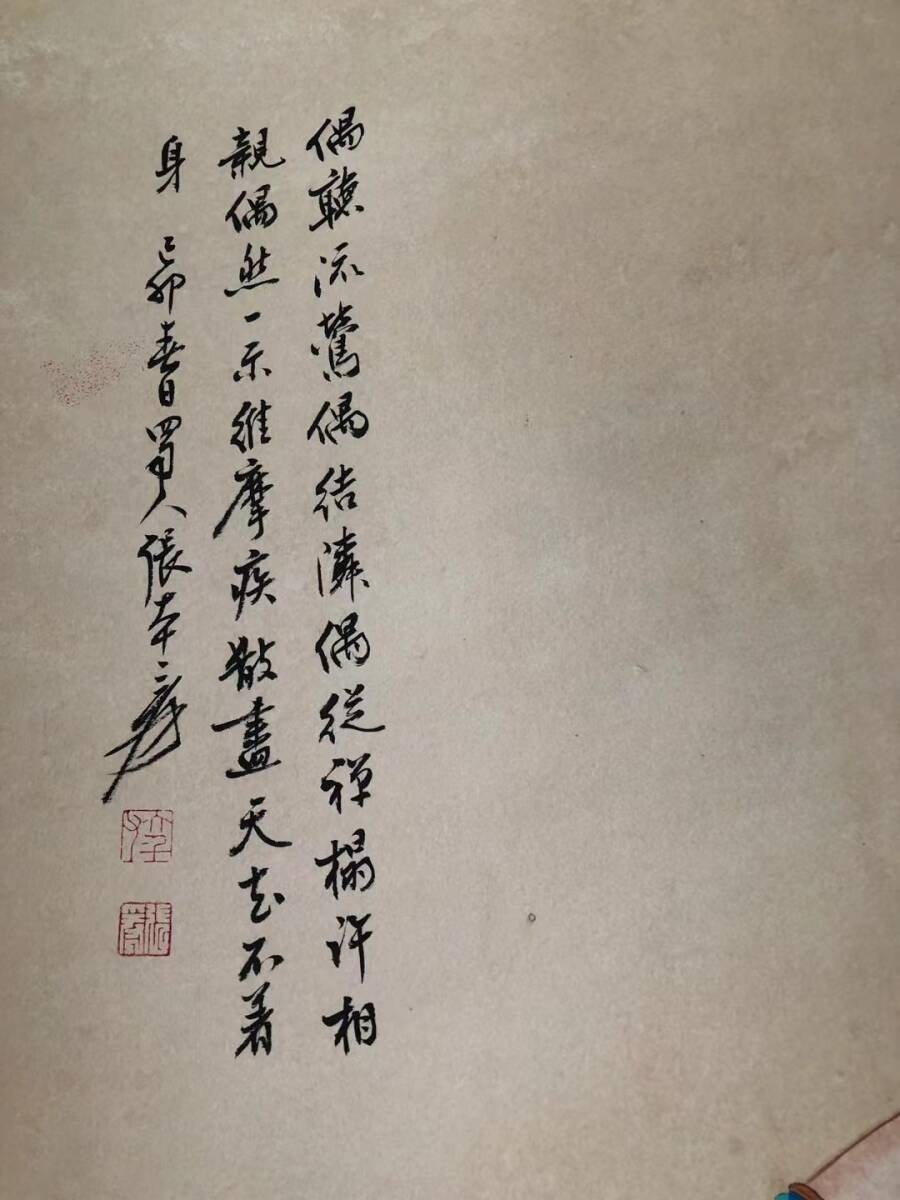 偶聽流鶯偶結鄰偶從禪榻許相
親偶然一示維摩疾散盡天花不著
身 己卯春日蜀人張大千爰